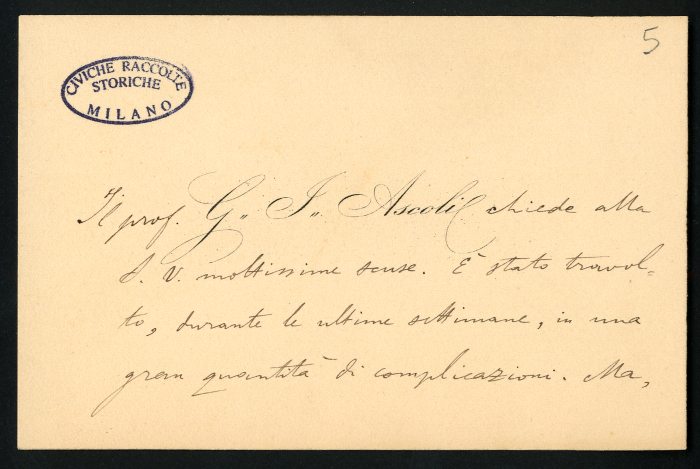 5
CIVICHE RACCOLTE
STORICHE
MILANO
Il prof. G. I. Ascoli chiede alla
S. V. moltissime scuse. È stato travol-
to, durante le ultime settimane, in una
gran quantità di complicazioni. Ma,